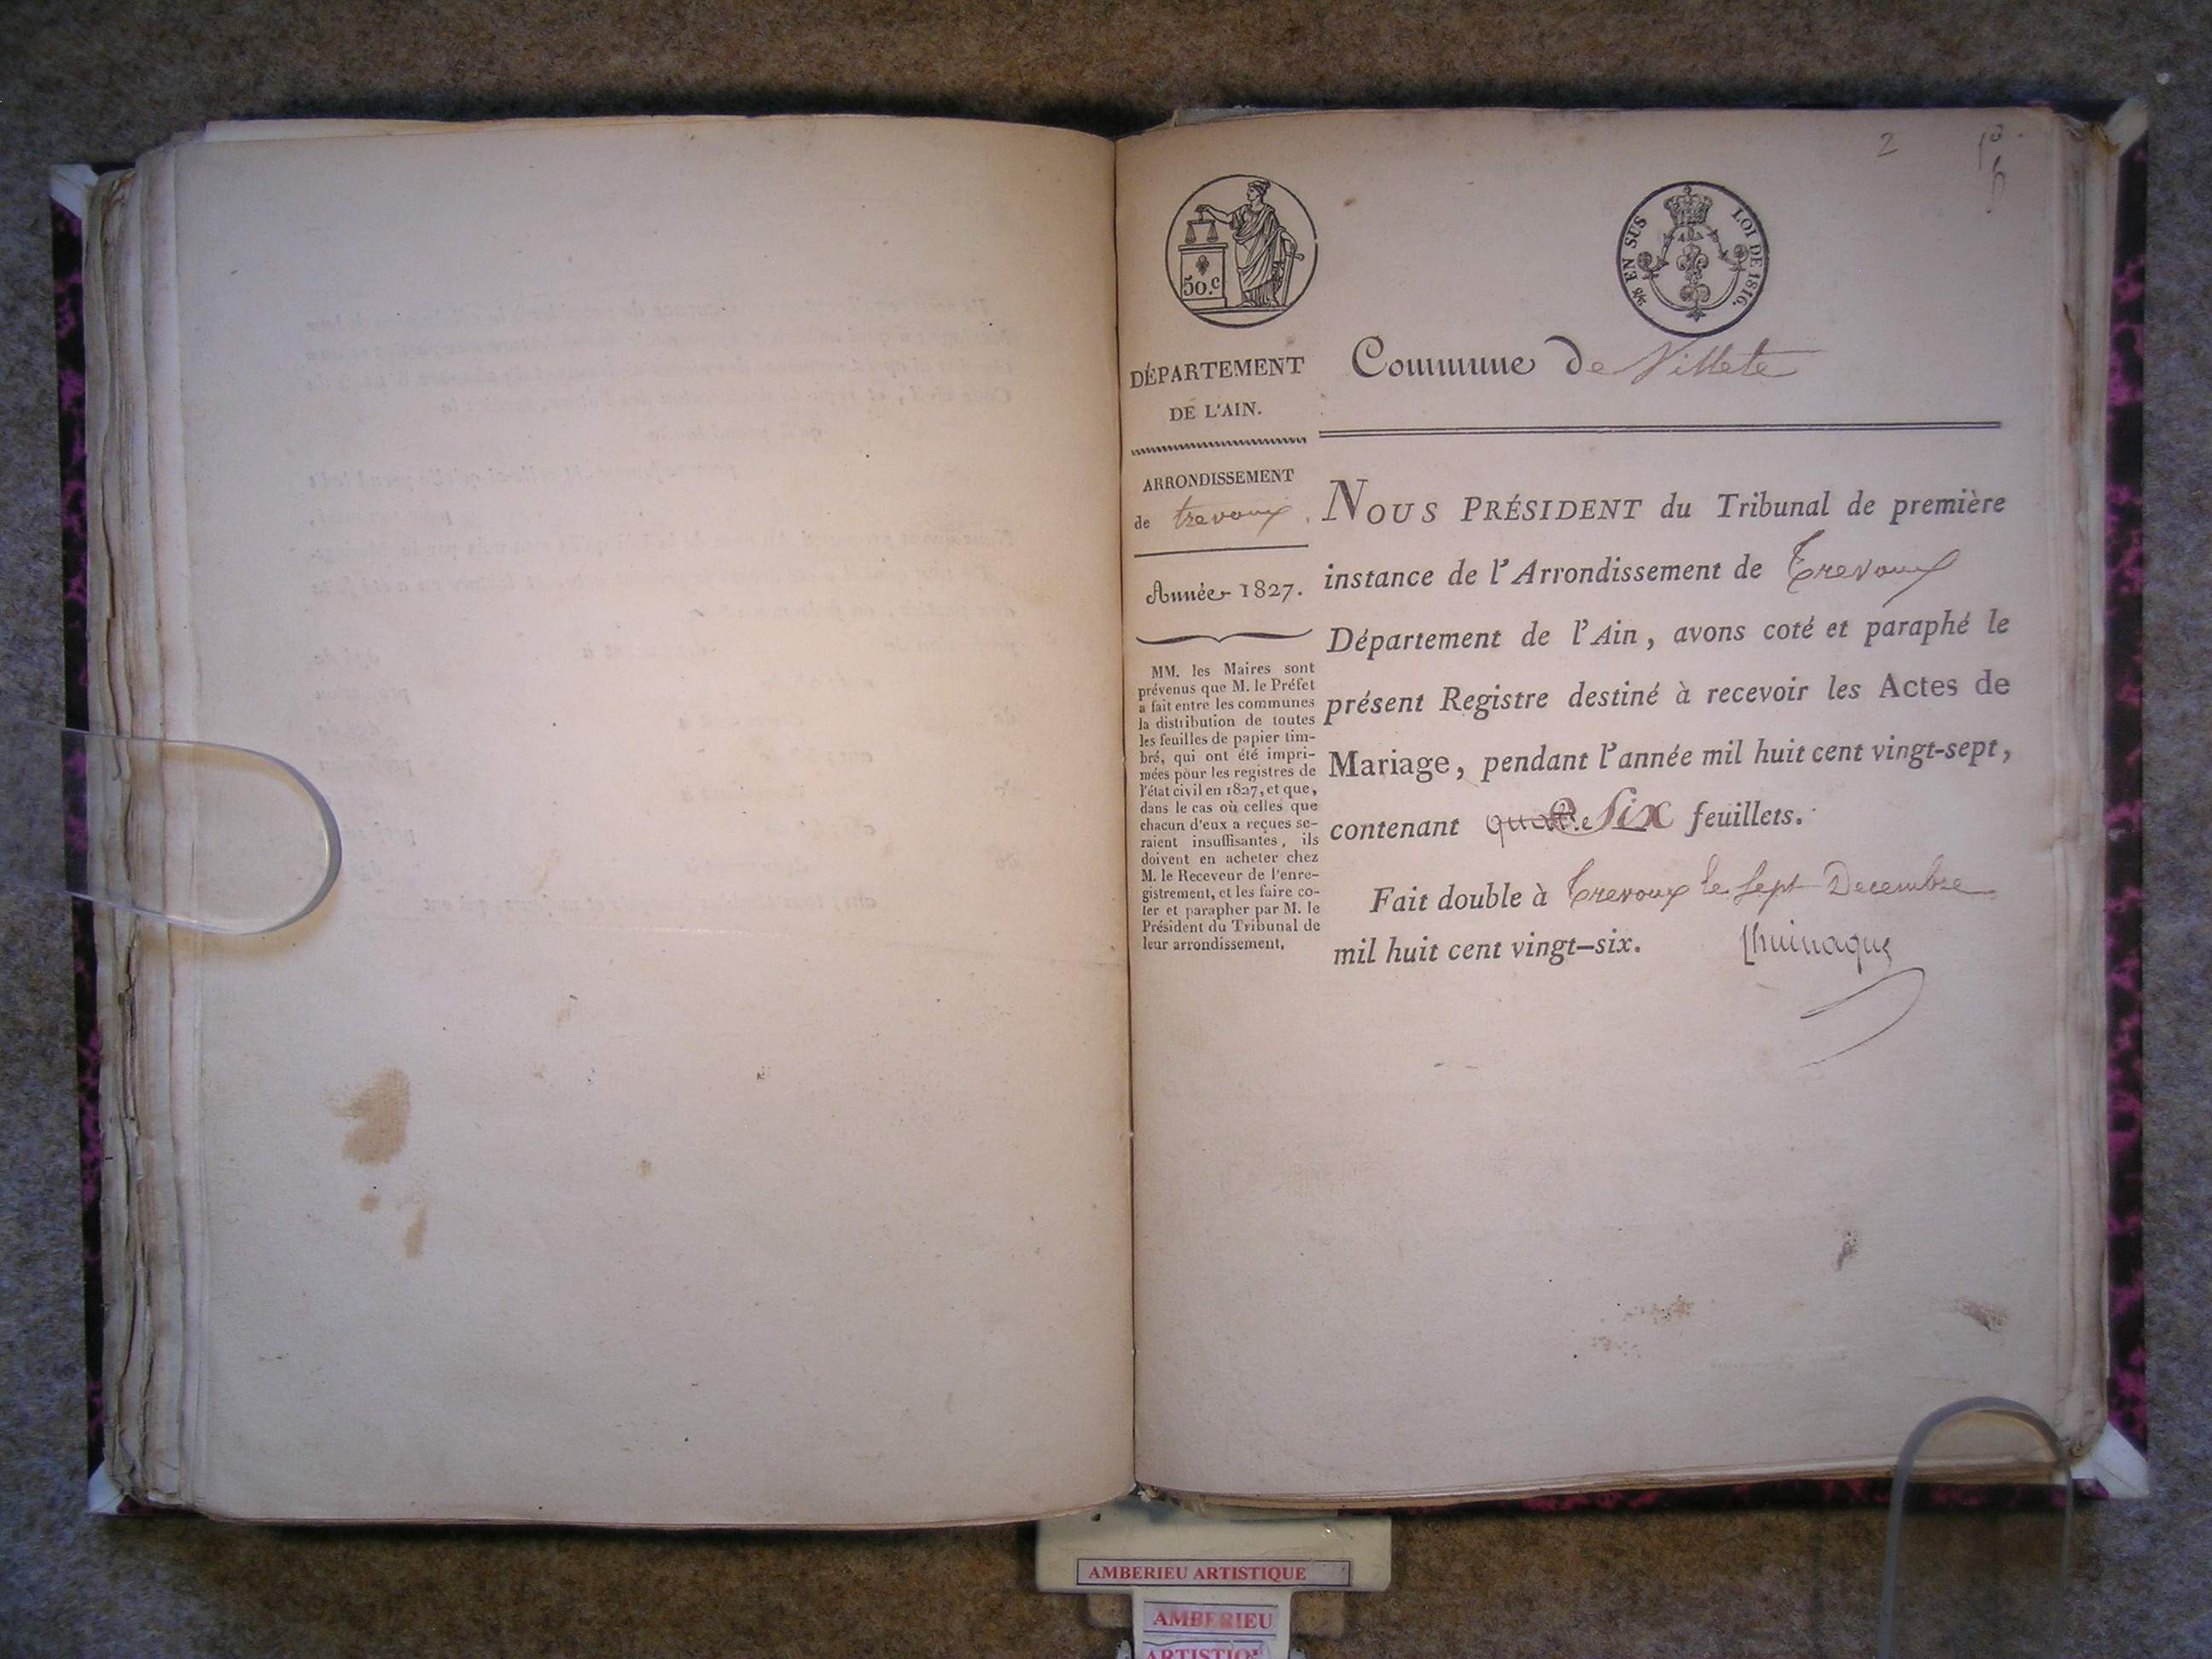 2
50.c
5/10 EN SUS
LOI DE 1816.
DÉPARTEMENT
DE L'AIN.
Commune de Villete
ARRONDISSEMENT
de trevoux
Année 1827.
MM. les Maires sont
prévenus que M. le Préfet
a fait entre les communes
la distribution de toutes
les feuilles de papier tim-
bré, qui ont été impri-
mées pour les registres de
l'état civil en 1827, et que,
dans le cas où celles que
chacun d'eux a reçues se-
raient insuffisantes, ils
doivent en acheter chez
M. le Receveur de l'enre-
gistrement, et les faire co-
ter et parapher par M. le
Président du Tribunal de
leur arrondissement.
NOUS PRÉSIDENT du Tribunal de première
instance de l'Arrondissement de Trevoux
Département de l'Ain, avons coté et paraphé le
présent Registre destiné à recevoir les Actes de
Mariage, pendant l'année mil huit cent vingt-sept,
contenant quatre Six feuillets.
Fait double à Trevoux le sept Decembre
mil huit cent vingt-six.
AMBERIEU ARTISTIQUE
AMBERIEU